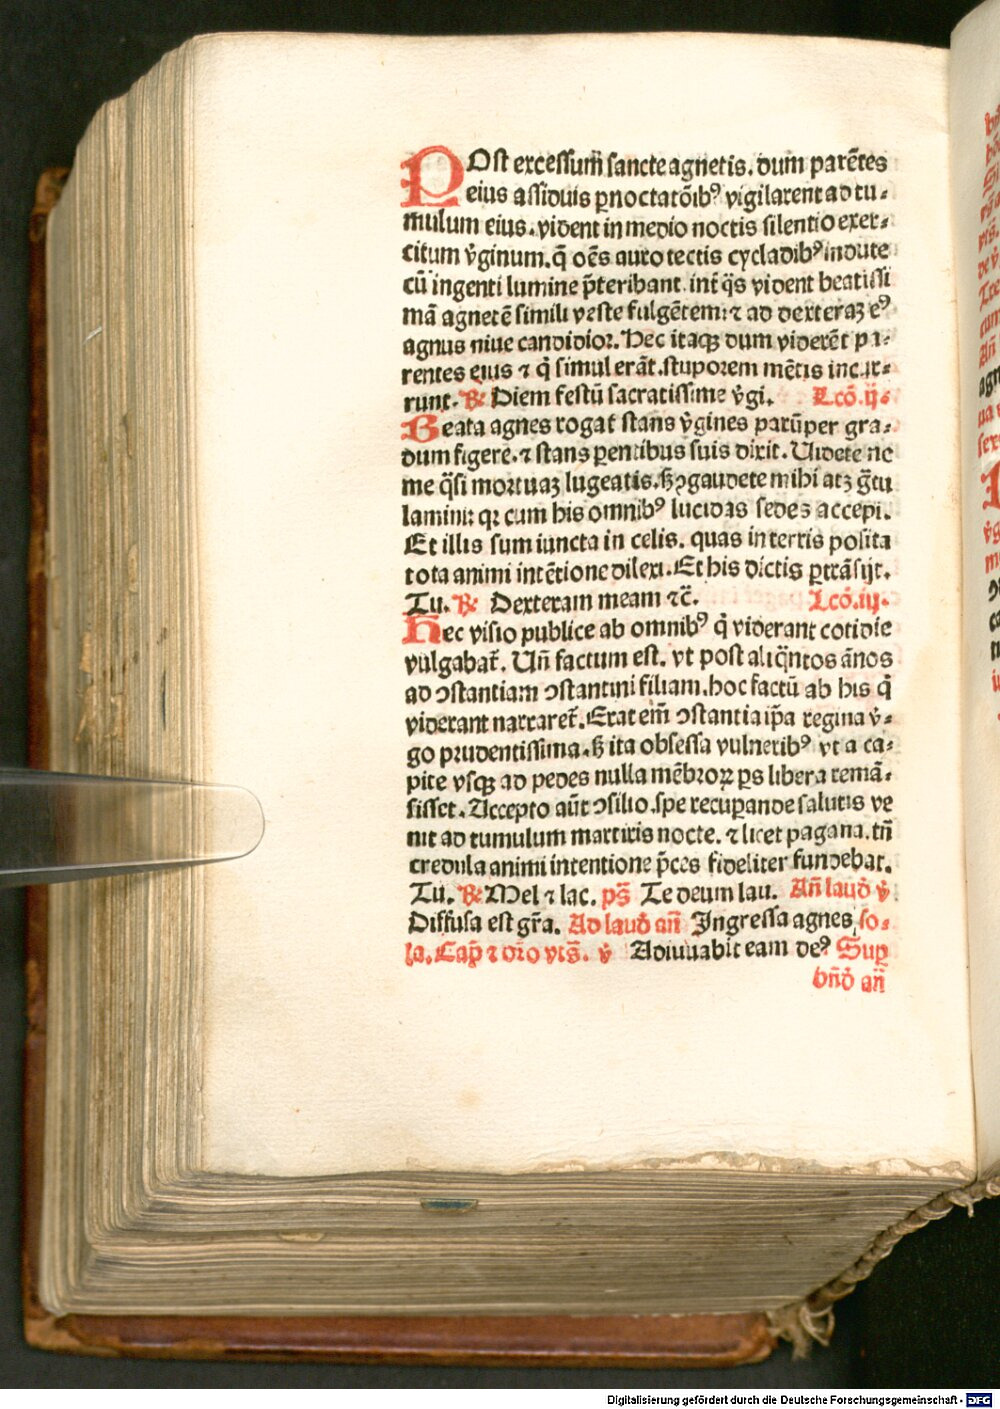 POst excessum̄ sancte agnetis. dum parētes
eius assiduis ꝑnoctatōibꝰ vigilarent ad tu⸗
mulum eius. vident in medio noctis silentio exer⸗
citum v̄ginum. q̄ oēs auro tectis cycladibꝰ indute
cū ingenti lumine p̄teribant. int̄ q̄s vident beatissi
mā agnetē simili veste fulgētem: ⁊ ad dexteraꝫ eꝰ
agnus niue candidior. Hec itaqꝫ dum viderēt pa⸗
rentes eius ⁊ q̄ simul erāt. stuporem mētis incur⸗
runt. ℟ Diem festū sacratissime v̄gi. Lcō. ij.
Beata agnes rogat̄ stans v̄gines parūper gra⸗
dum figere. ⁊ stans ꝑentibus suis dixit. Uidete ne
me q̄si mortuaꝫ lugeatis. sꝫ ꝯgaudete mihi atꝫ g̃tu
lamini: qꝛ cum his omnibꝰ lucidas sedes accepi.
Et illis sum iuncta in celis. quas in terris posita
tota animi intētione dilexi. Et his dictis ꝑtrāsijt.
Tu. ℟ Dexteram meam ⁊c̄. Lcō. iij.
Hec visio publice ab omnibꝰ q̄ viderant cotidie
vulgabat̄. Un̄ factum est. vt post aliq̄ntos ānos
ad ꝯstantiam ꝯstantini filiam. hoc factū ab his q̄
viderant narraret̄. Erat em̄ ꝯstantia ip̄a regina v̄⸗
go prudentissima. sꝫ ita obsessa vulneribꝰ vt a ca⸗
pite vsqꝫ ad pedes nulla mēbroꝝ ꝑs libera remā⸗
sisset. Accepto aūt ꝯsilio. spe recuꝑande salutis ve
nit ad tumulum martiris nocte. ⁊ licet pagana. tn̄
credula animi intentione p̄ces fideliter fundebat.
Tu. ℟ Mel ⁊ lac. ps̄ Te deum lau. An̄ laud̄ v̄
Diffusa est gr̄a. Ad laud̄ an̄ Ingressa agnes. so⸗
la. Cap̄ ⁊ or̄o vts̄. v̄ Adiuuabit eam deꝰ Suꝑ
bn̄d̄ an̄
Digitalisierung gefördert durch die Deutsche Forschungsgemeinschaft - DFG